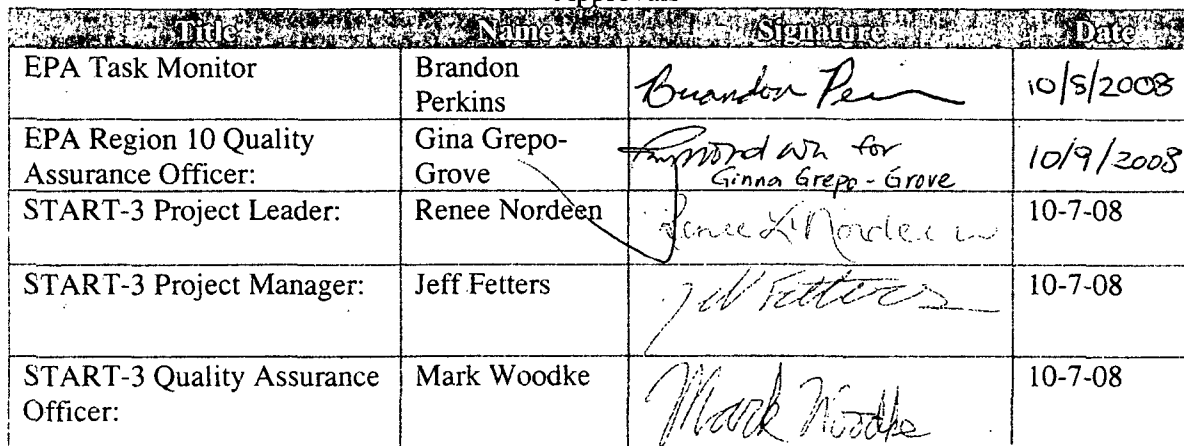 Approvals
Title Name Signature Date
EPA Task Monitor Brandon Perkins Brandon Pe 10/8/2008
EPA Region 10 Quality Assurance Officer: Gina Grepo-Grove for Ginna Grepo-Grove 10/9/2008
START-3 Project Leader: Renee Nordeen Renee L Nordeen 10-7-08
START-3 Project Manager: Jeff Fetters Jeff Fetters 10-7-08
START-3 Quality Assurance Officer: Mark Woodke Mark Woodke 10-7-08